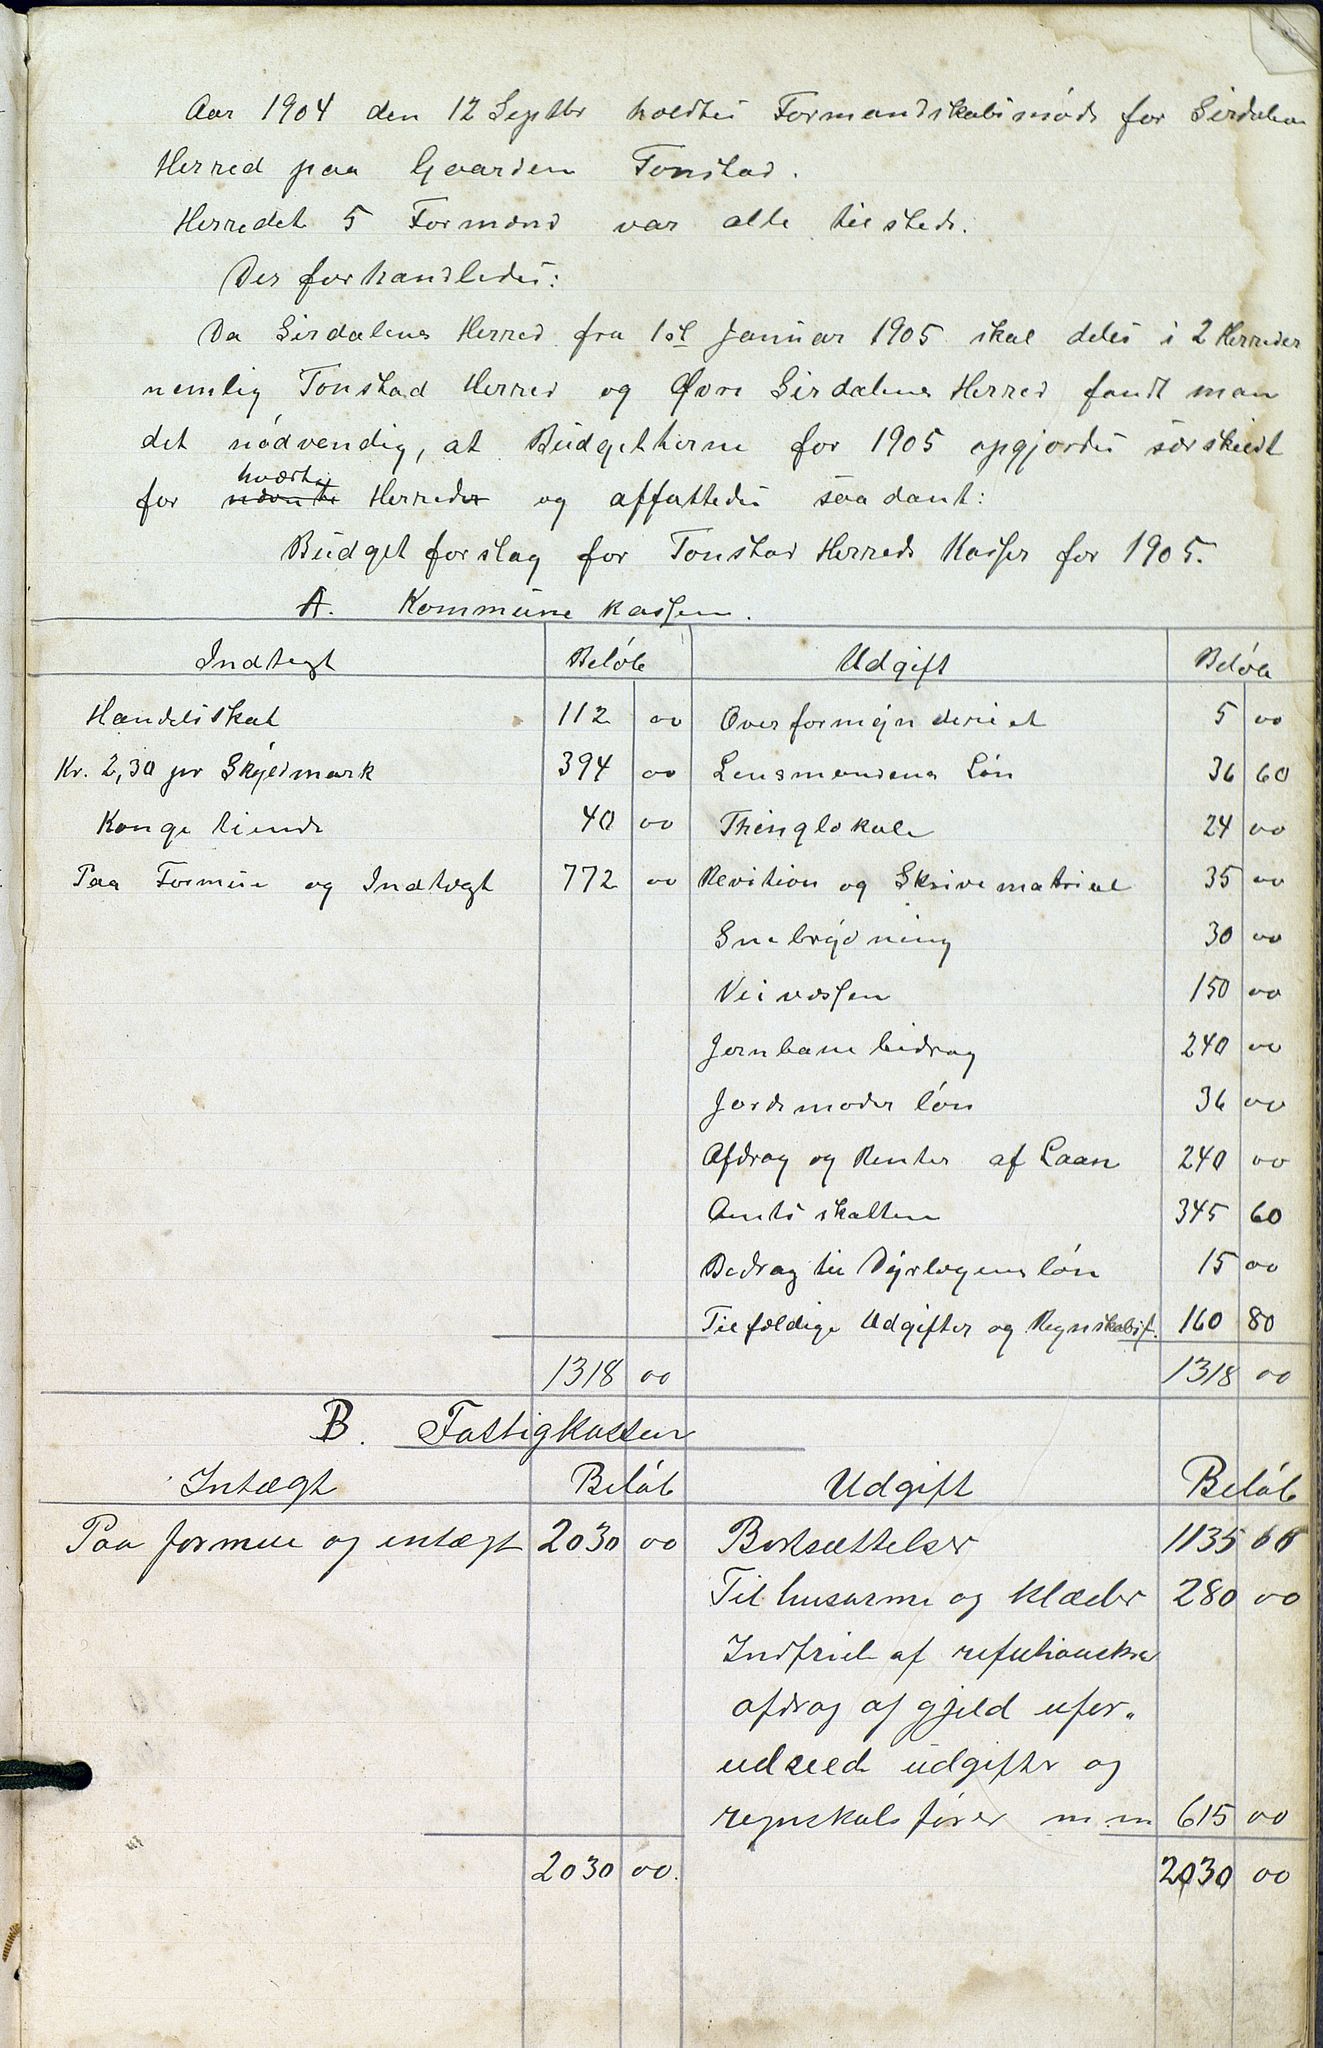 Aar 1904 den 12 Septbr holdtes Formandskabsmøde for Sirdalens
Herred paa Gaarden Tonstad.
Herredets 5 Formænd var alle tilstede.
Der forhandledes:
Da Sirdalens Herred fra 1st Januar 1905 skal deles i 2 Herreder
nemlig Tonstad Herred og Øvre Sirdalens Herred fandt man
det nødvendig, at Budgetterne for 1905 opgjordes særskildt
for hværts Herreder og affattedes saadant:
Budgetforslag for Tonstad Herreds Kasser for 1905.
A. Kommunekassen.
Indtægt Beløb Udgift Beløb
Handelsskat 112 00 Overformynderiet 5 00
Kr. 2,30 pr Skyldmark 394 00 Lensmandens Løn 36 60
Kongetiende 40 00 Thinglokale 24 00
Paa Formue og Indtægt 772 00 Revition og Skrivematrial 35 00
Snebrydning 30 00
Veivæsen 150 00
Jernbanebidrag 240 00
Jordemoderløn 36 00
Afdrag og Renter af Laan 240 00
Amtsskatten 345 60
Bedrag til Dyrlægens løn 15 00
Tilfældige Udgifter og Regnskabsf. 160 80
1318 00 1318 00
B. Fattigkassen
Intægt Beløb Udgift Beløb
Paa formue og intægt 2030 00 Bortsættelser 1135 00
Til husarme og klæder 280 00
Indfriel af refutionskra
afdrag af gjeld ufor„
udseed udgifter og
regnskabsfører m m 615 00
2030 00. 2030 00